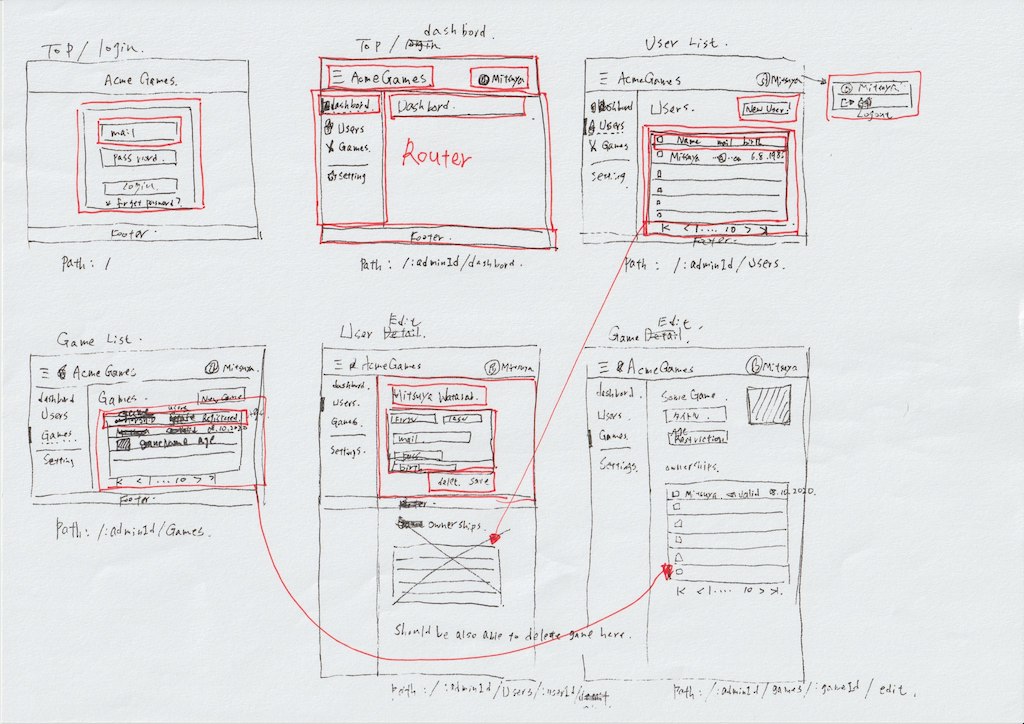 Top / login.
Acme Games.
mail
password.
login.
* forget password?
Footer.
Path: /
Top / dashbord.
Acme Games
Mitsuya
dashbord
Users
Games.
Setting
Dashbord.
Router
Footer.
Path: /:adminId/dashbord.
User List.
Acme Games
Mitsuya
Mitsuya
Logout
dashbord
Users
Games
Setting.
Users.
New User
Name mail birth
Mitsuya
K < 1 .... 10 > >|
Footer.
Path: /:adminId/Users.
Game List.
Acme Games
Mitsuya.
dashbord
Users
Games
Setting
Games.
New Game
Registered.
08.10.2020
game name age
K < 1 ... 10 > >|
Footer.
Path: /:adminId/Games.
User Edit
Acme Games
Mitsuya
dashbord.
Users.
Games.
Settings.
mail
birth
delet. save
ownerships.
Should be also able to delete game here.
Path: /:adminId/Users/:userId/
Game Edit.
Acme Games
Mitsuya
dashbord.
Users.
Games.
Settings.
Some Game.
タイトル.
Age
Restriction
ownerships.
Mitsuya valid 08.10.2020.
K < 1 .... 10 > >|.
Path: /:adminId/games/:gameId/edit.